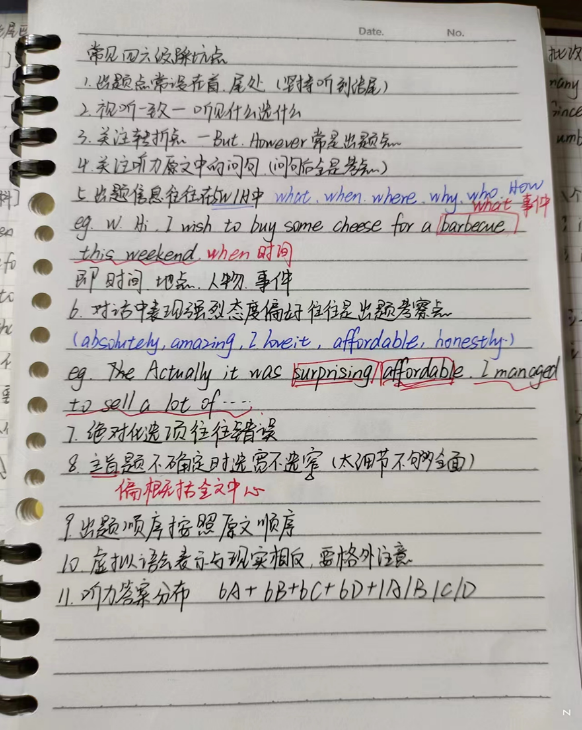 Date.
No.
常见四六级踩坑点
1.出题点常设在首、尾处 (坚持听到结尾)
2.视听一致—听见什么选什么
3.关注转折点 —But. However 常是出题点
4.关注听力原文中的问句 (问句后全是考点)
5.出题信息往往在W/H中 what. when. where. why. who. How
what 事件
eg. W. Hi. I wish to buy some cheese for a barbecue
this weekend. when 时间
即时间. 地点. 人物. 事件
6. 对话中表现强烈态度偏好往往是出题考察点
(absolutely, amazing, I love it, affordable, honestly.)
eg. The Actually it was surprising affordable. I managed
to sell a lot of ....
7. 绝对化选项往往错误
8. 主旨题不确定时选宽不选窄 (太细节不够全面)
偏概括全文中心
9.出题顺序按照原文顺序
10.虚拟语法表示与现实相反,要格外注意
11.听力答案分布 6A+6B+6C+6D+1A/B/C/D
批改
many
since